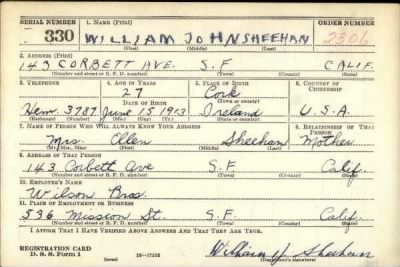 SERIAL NUMBER 1. NAME (Print) ORDER NUMBER
330 WILLIAM JOHN SHEEHAN 2306
(First) (Middle) (Last)
2. ADDRESS (Print)
143 CORBETT AVE. S.F CALIF.
(Number and street or R. F. D. number) (Town) (County) (State)
3. TELEPHONE 4. AGE IN YEARS 5. PLACE OF BIRTH 6. COUNTRY OF CITIZENSHIP
27 Cork
DATE OF BIRTH (Town or county)
Hem. 3787 June 15 1913 Ireland U.S.A.
(Exchange) (Number) (Mo.) (Day) (Yr.) (State or country)
7. NAME OF PERSON WHO WILL ALWAYS KNOW YOUR ADDRESS 8. RELATIONSHIP OF THAT PERSON
Mrs. Ellen Sheehan Mother
(Mr., Mrs., Miss) (First) (Middle) (Last)
9. ADDRESS OF THAT PERSON
143 Corbett Ave S.F Calif.
(Number and street or R. F. D. number) (Town) (County) (State)
10. EMPLOYER'S NAME
Wilson Bros.
11. PLACE OF EMPLOYMENT OR BUSINESS
536 Mission St. S.F. Calif.
(Number and street or R. F. D. number) (Town) (County) (State)
I AFFIRM THAT I HAVE VERIFIED ABOVE ANSWERS AND THAT THEY ARE TRUE.
REGISTRATION CARD
D. S. S. Form 1 (over) 16—17105 William J Sheehan
(Registrant's signature)